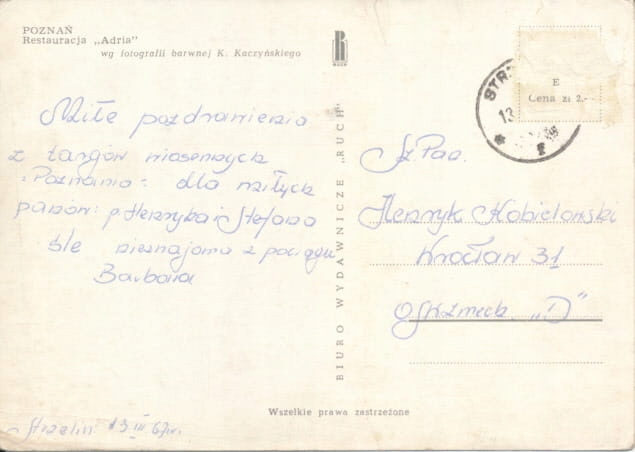 POZNAŃ
Restauracja „Adria"
wg fotografii barwnej K. Kaczyńskiego
RUCH
STRZ
13
E
Cena zł 2.-
Miłe pozdrowienia
z targów wiosennych
"Poznania" dla miłych
panów: p. Henryka i Stefana
śle nieznajoma z pociągu
Barbara
Strzelin 13 III 67r.
BIURO WYDAWNICZE „RUCH"
Sz. Pan.
Henryk Kobielonski
Wrocław 31
„D"
Wszelkie prawa zastrzeżone